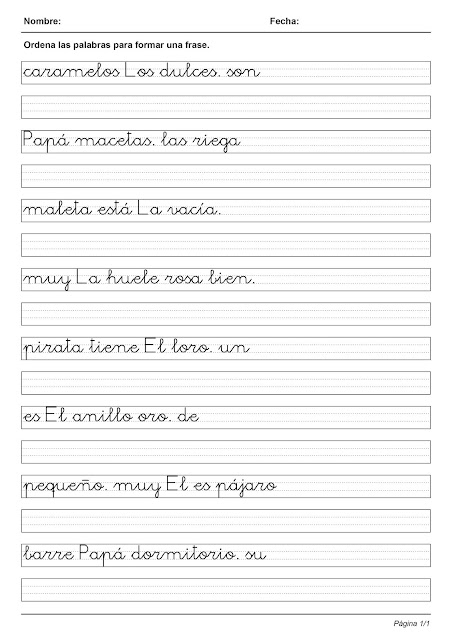 Nombre: Fecha:
Ordena las palabras para formar una frase.
caramelos Los dulces. son
Papá macetas. las riega
maleta está La vacía.
muy La huele rosa bien.
pirata tiene El loro. un
es El anillo oro. de
pequeño. muy El es pájaro
barre Papá dormitorio. su
Página 1/1